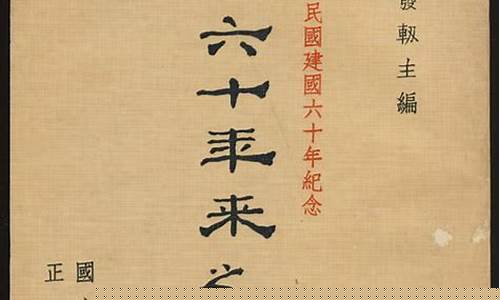 發軔主編
民國建國六十年紀念
六十年来之
國
正